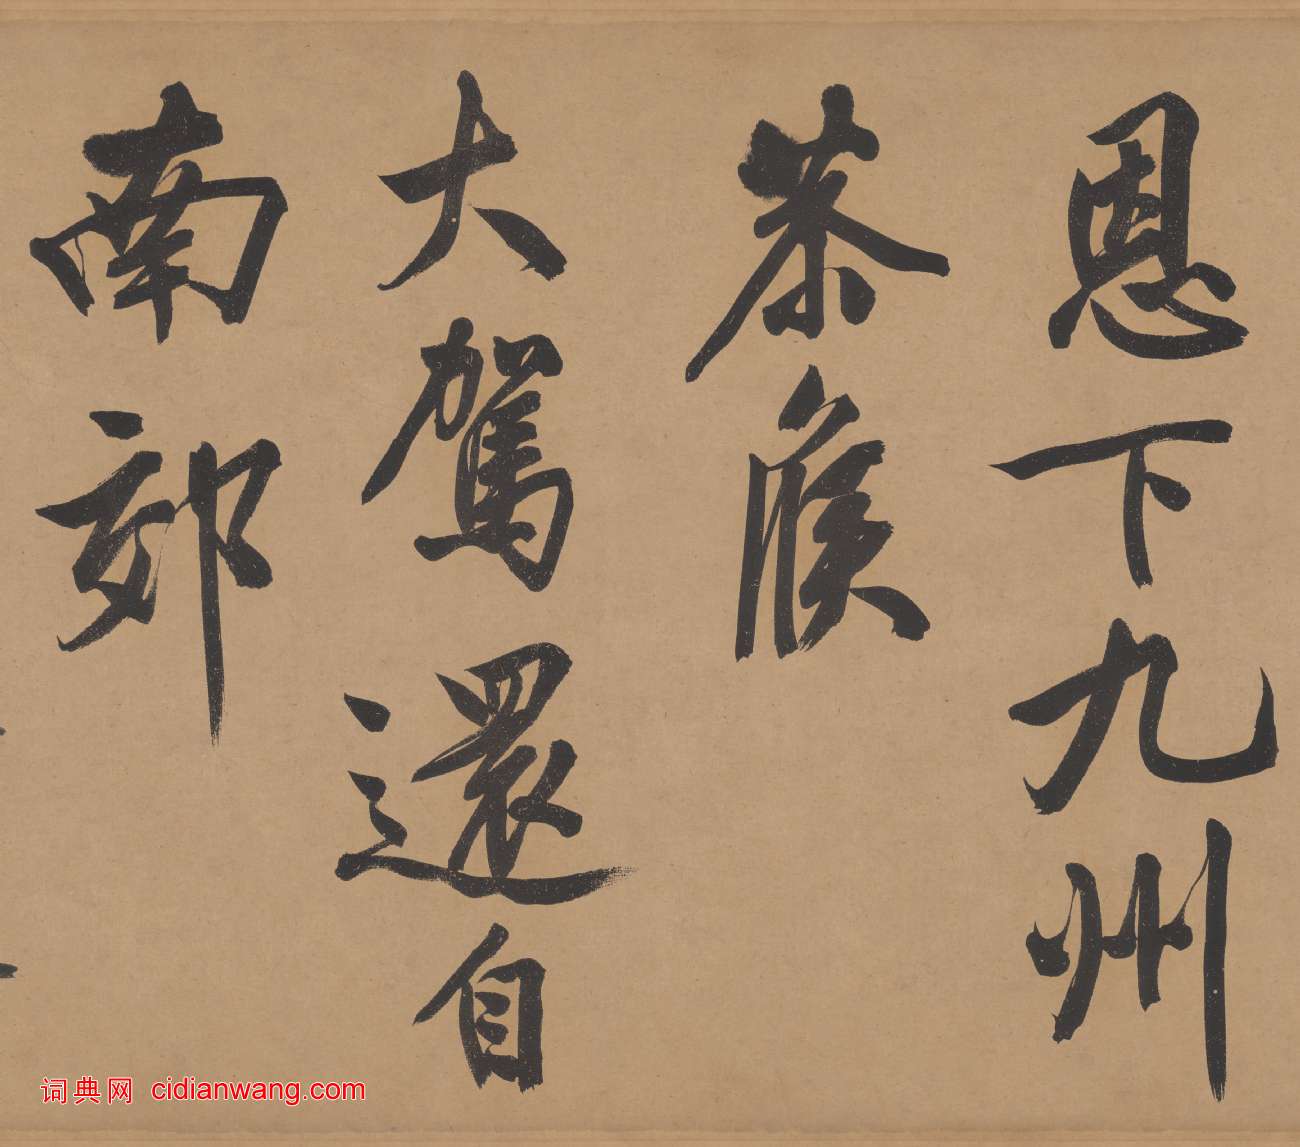 恩下九州
恭候
大駕還自
南郊
词典网 cidianwang.com